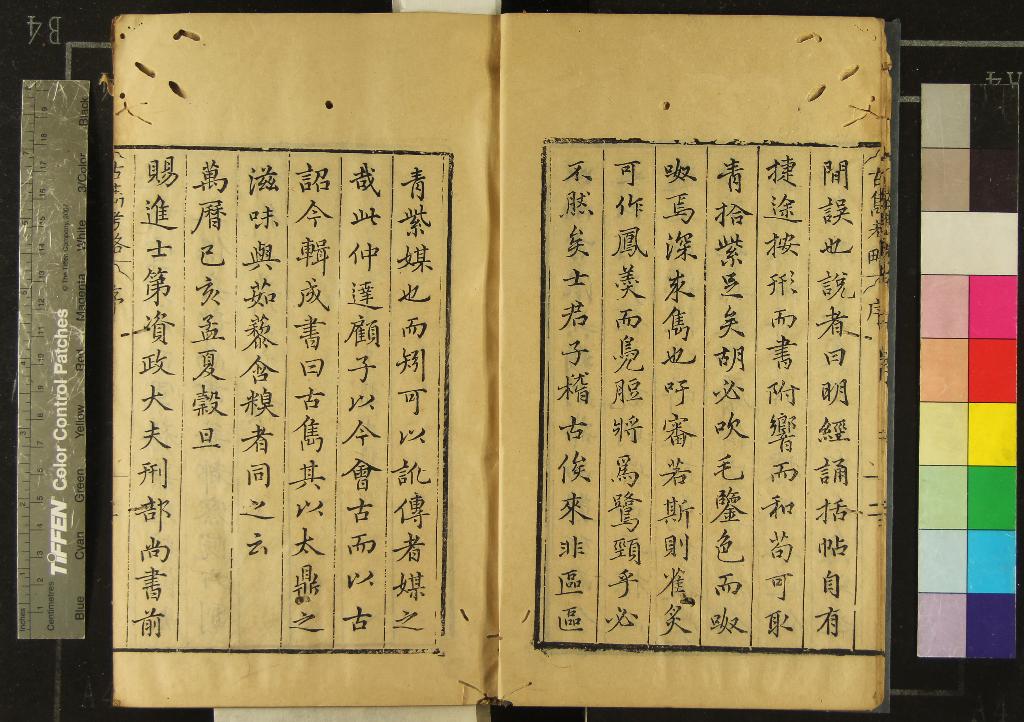 間誤也說者曰明經誦括帖自有
捷途按形而書附響而和苟可取
青拾紫足矣胡必吹毛鑒色而呶
呶焉深求雋也吁審若斯則雀炙
可作鳳羹而鳧脰將為鷺頸乎必
不然矣士君子稽古俟來非區區
青紫媒也而矧可以訛傳者媒之
哉此仲達顧子以今會古而以古
詔今輯成書曰古雋其以太鼎之
滋味與茹藜含糗者同之云
萬曆己亥孟夏穀旦
賜進士第資政大夫刑部尚書前
古雋考略
序
二
TIFFEN Color Control Patches
© The Tiffen Company, 2007
Inches
Centimetres
Blue
Cyan
Green
Yellow
Red
Magenta
White
3/Color
Black
B4
A4